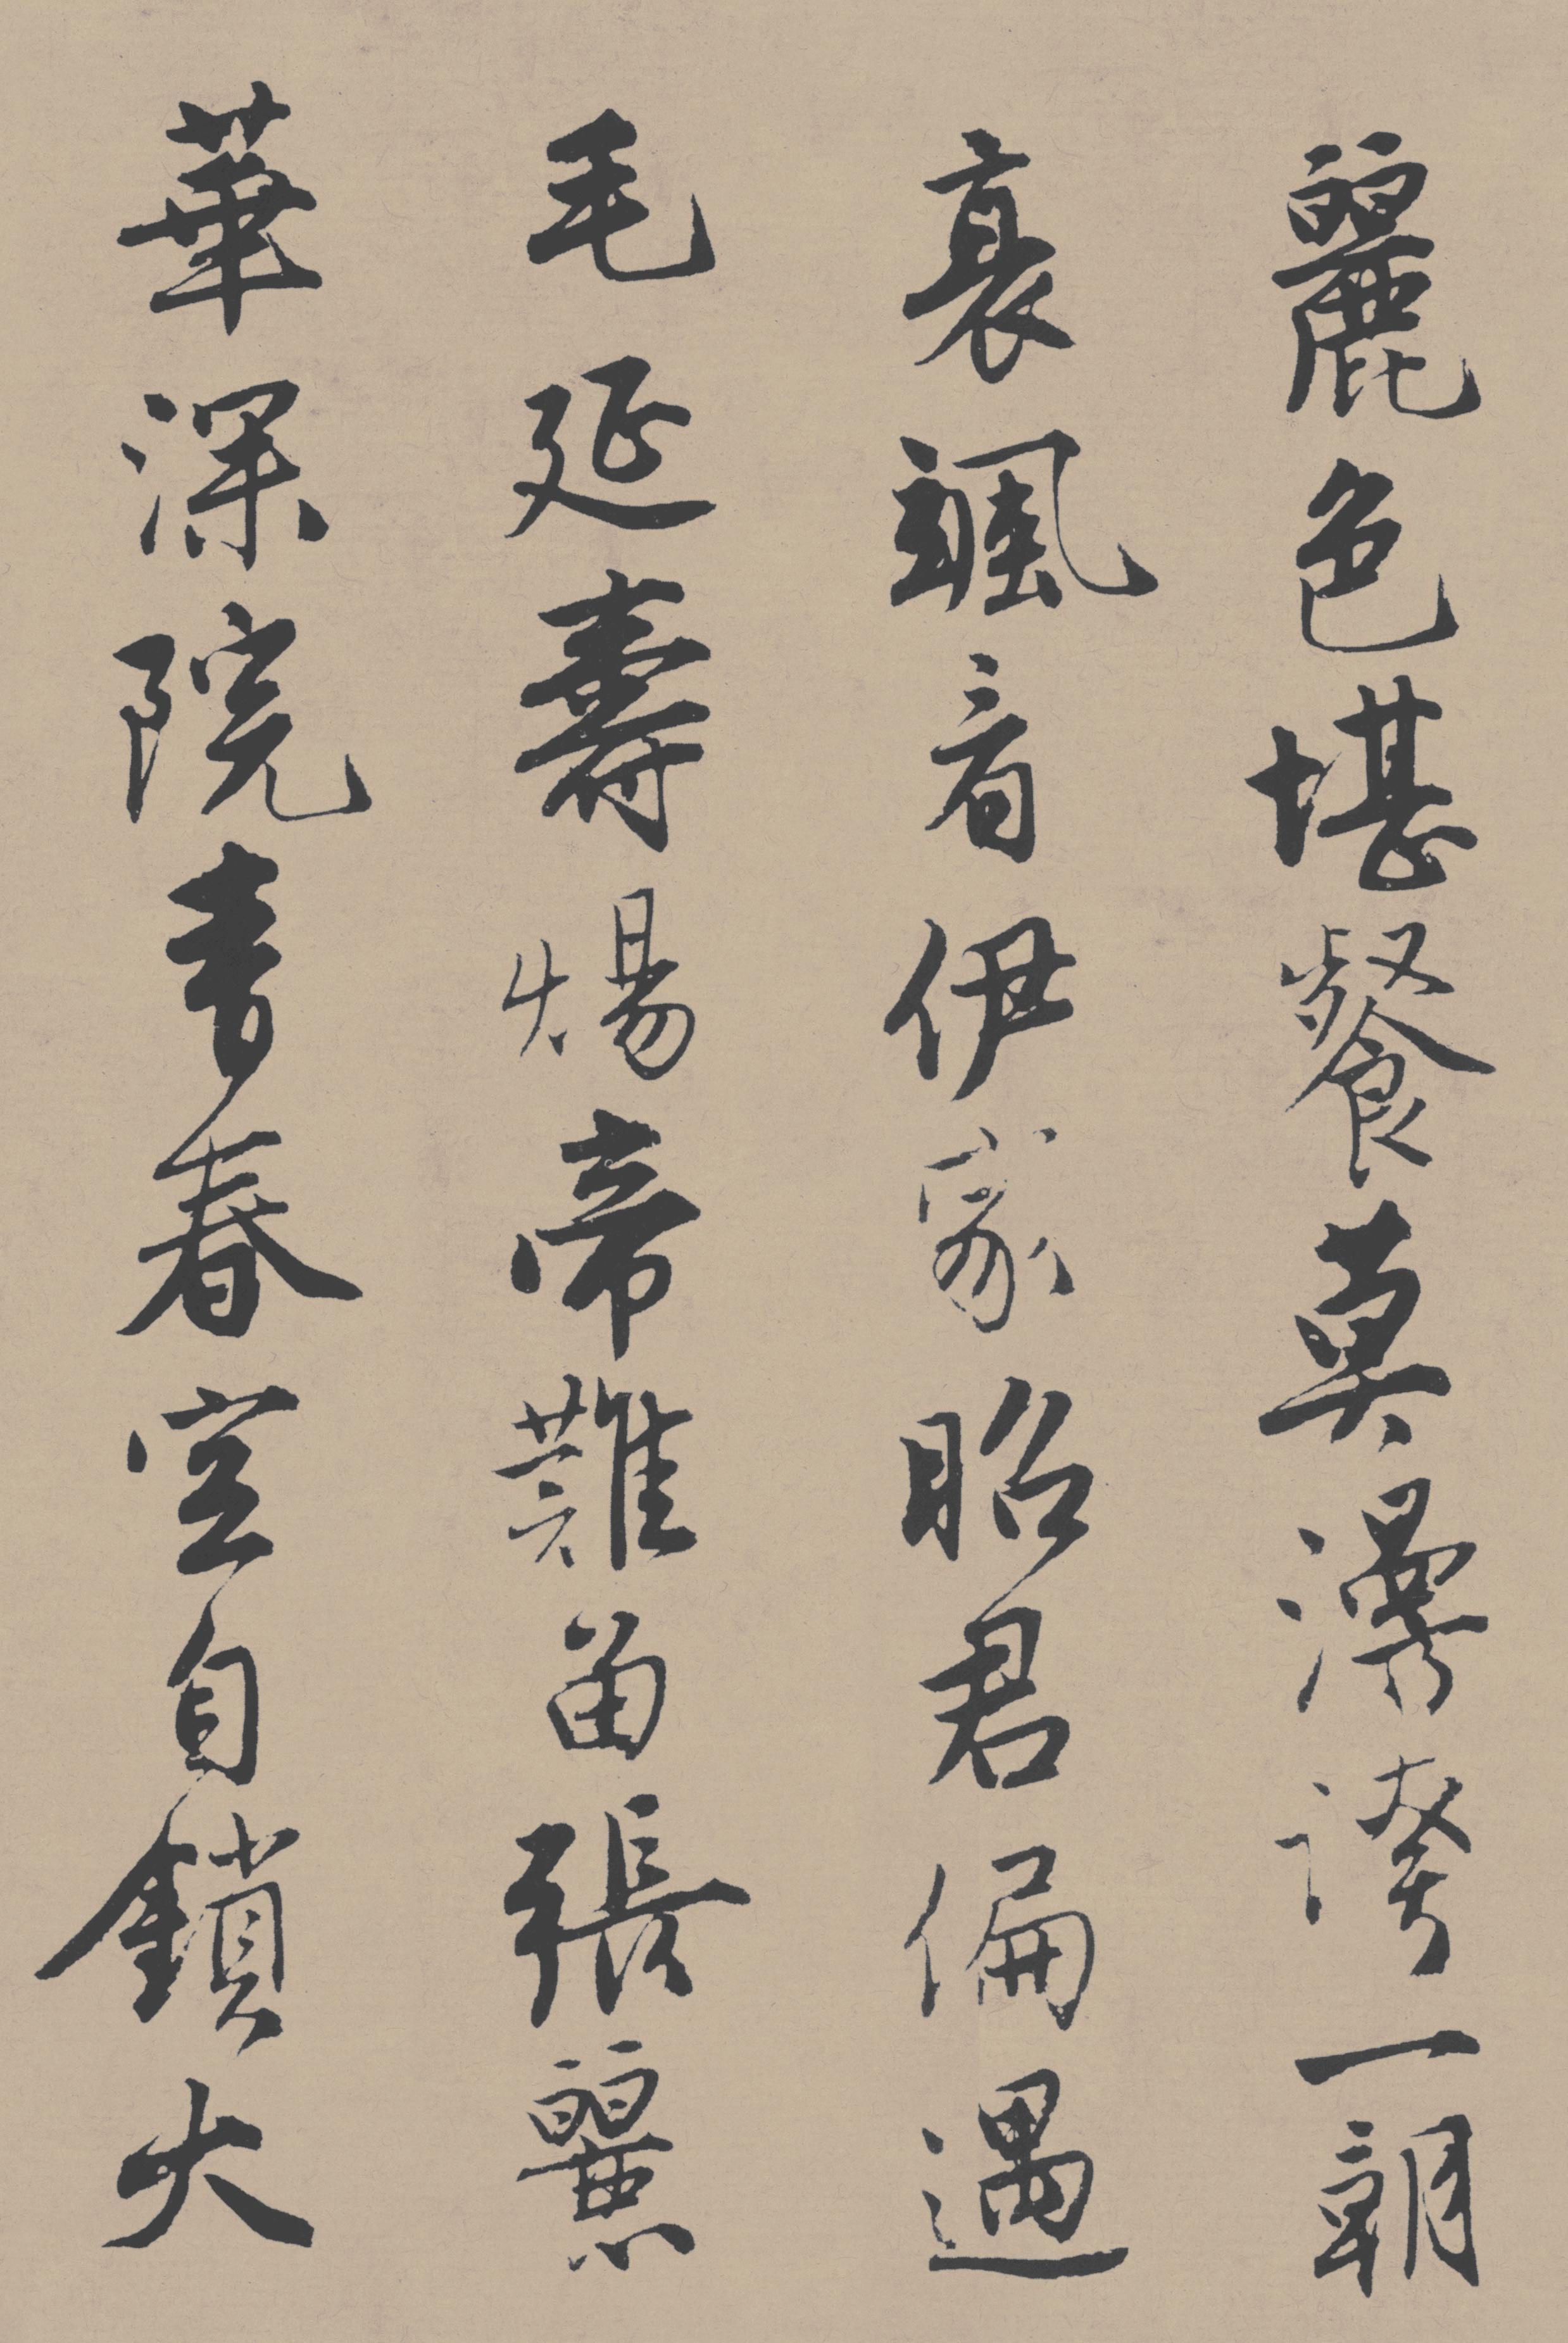 麗色堪餐莫漫誇一朝
衰颯有伊家昭君偏遇
毛延壽煬帝難留張麗
華深院青春空自鎖大